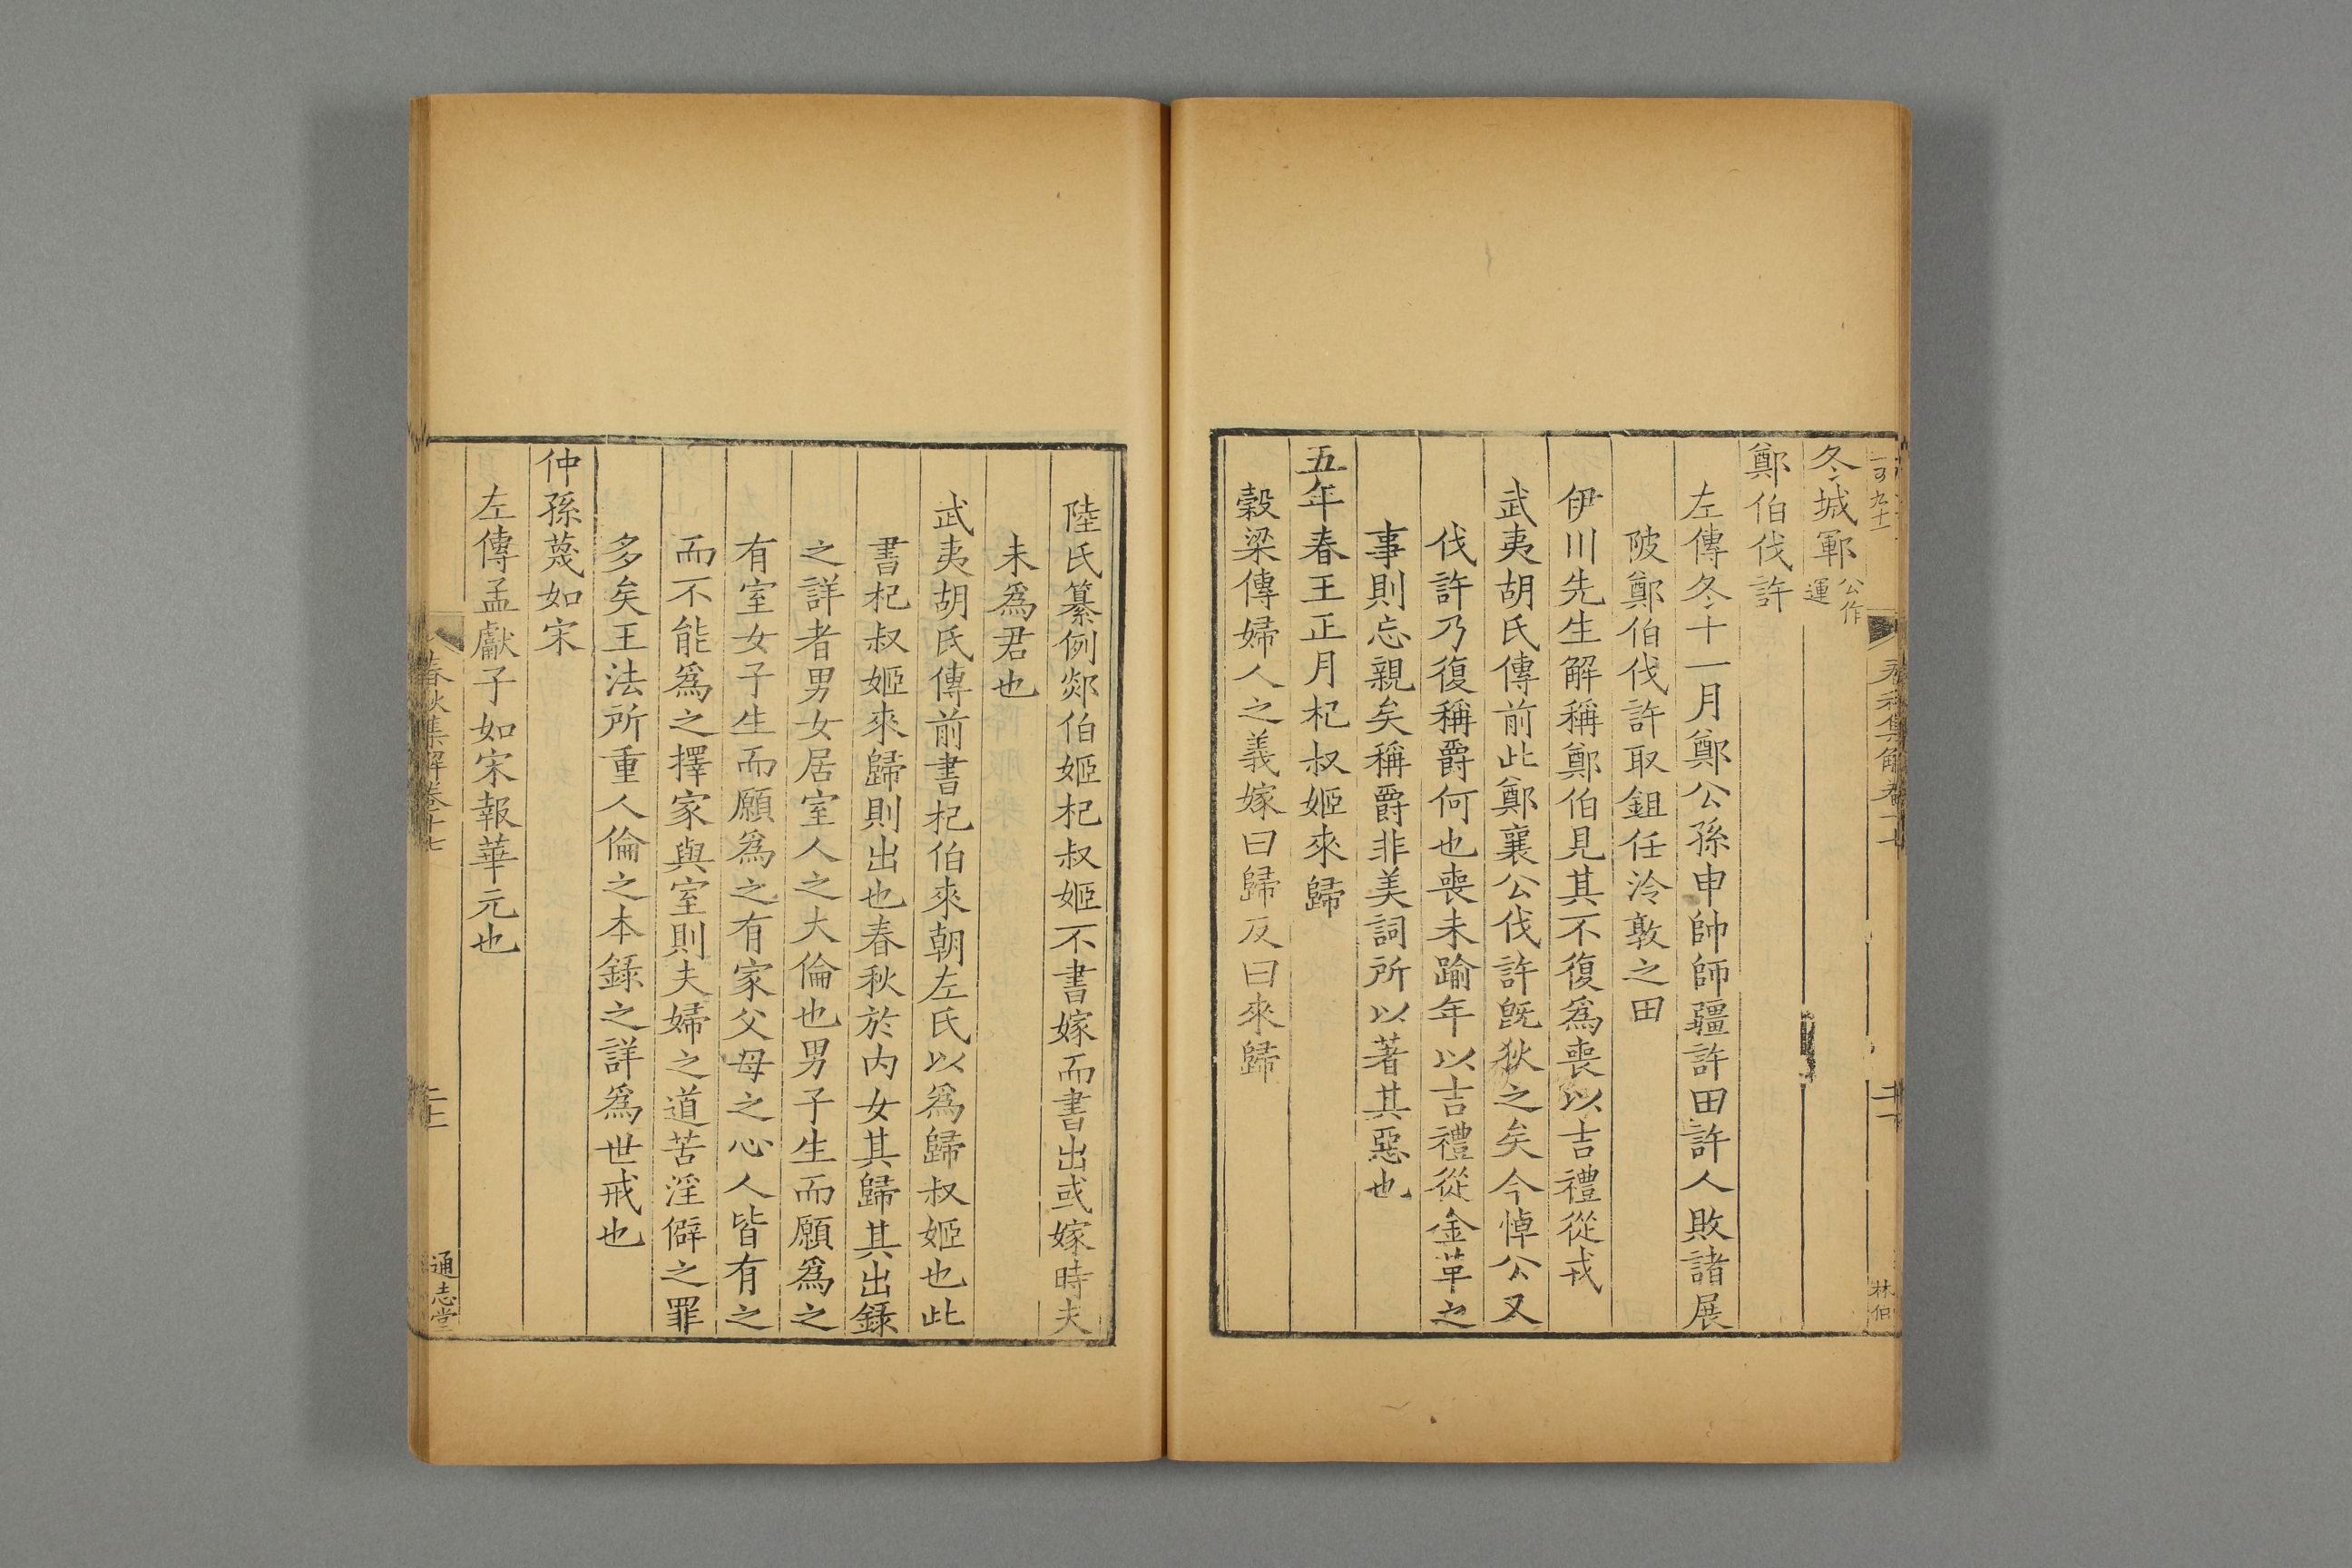 冬城鄆公作運
鄭伯伐許
左傳冬十一月鄭公孫申帥師疆許田許人敗諸展
陂鄭伯伐許取鉏任泠敦之田
伊川先生解稱鄭伯見其不復爲喪以吉禮從戎
武夷胡氏傳前此鄭襄公伐許旣狄之矣今悼公又
伐許乃復稱爵何也喪未踰年以吉禮從金革之
事則忘親矣稱爵非美詞所以著其惡也
五年春王正月杞叔姬來歸
穀梁傳婦人之義嫁曰歸反曰來歸
陸氏纂例郯伯姬杞叔姬不書嫁而書出或嫁時夫
未爲君也
武夷胡氏傳前書杞伯來朝左氏以爲歸叔姬也此
書杞叔姬來歸則出也春秋於内女其歸其出錄
之詳者男女居室人之大倫也男子生而願爲之
有室女子生而願爲之有家父母之心人皆有之
而不能爲之擇家與室則夫婦之道苦淫僻之罪
多矣王法所重人倫之本錄之詳爲世戒也
仲孫蔑如宋
左傳孟獻子如宋報華元也
春秋集解卷十七
通志堂